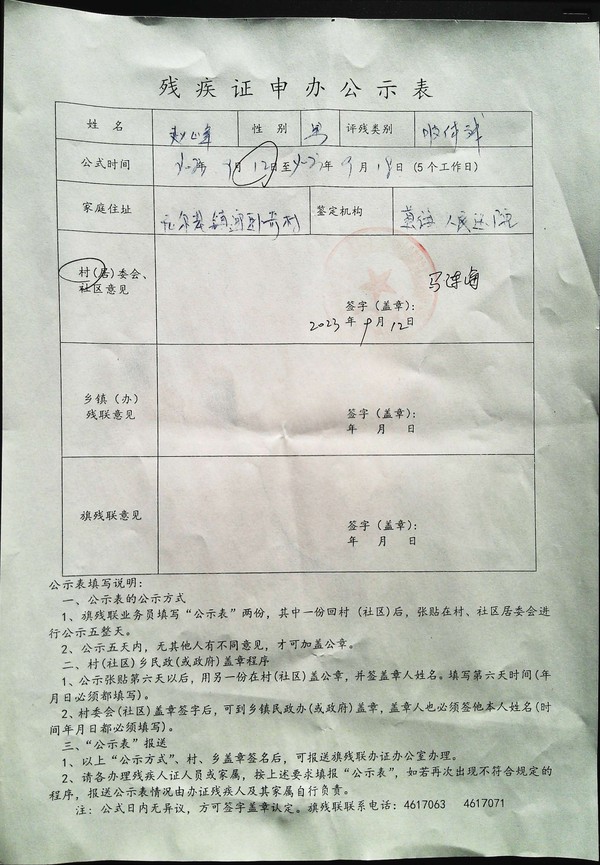 残疾证申办公示表
姓 名 性 别 男 评残类别 肢体
公式时间 年 9月12日至 年9月18日(5个工作日)
家庭住址 尔 镇 村 鉴定机构 人民医院
村(居)委会、
社区意见
签字(盖章):
2023年9月12日
乡镇(办)
残联意见
签字(盖章):
年 月 日
旗残联意见
签字(盖章):
年 月 日
公示表填写说明:
一、公示表的公示方式
1、旗残联业务员填写“公示表”两份,其中一份回村(社区)后,张贴在村、社区居委会进
行公示五整天。
2、公示五天内,无其他人有不同意见,才可加盖公章。
二、村(社区)乡民政(或政府)盖章程序
1、公示张贴第六天以后,用另一份在村(社区)盖公章,并签盖章人姓名。填写第六天时间(年
月日必须都填写)。
2、村委会(社区)盖章签字后,可到乡镇民政办(或政府)盖章,盖章人也必须签他本人姓名(时
间年月日都必须填写)。
三、“公示表”报送
1、以上“公示方式”、村、乡盖章签名后,可报送旗残联办证办公室办理。
2、请各办理残疾人证人员或家属,按上述要求填报“公示表”,如若再次出现不符合规定的
程序,报送公示表情况由办证残疾人及其家属自行负责。
注:公式日内无异议,方可签字盖章认定。旗残联联系电话:4617063 4617071